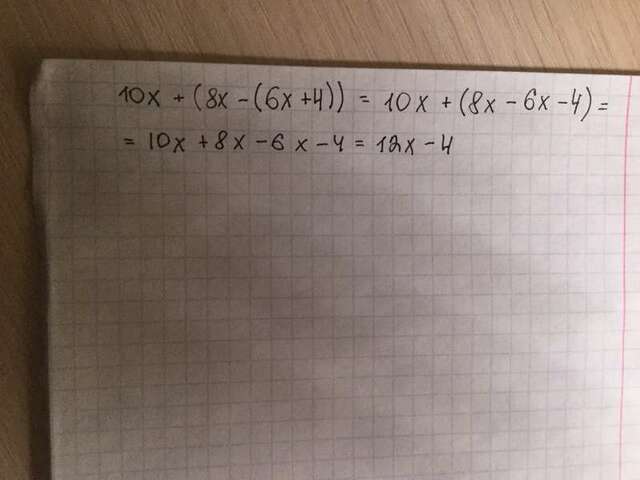 10x + (8x - (6x + 4)) = 10x + (8x - 6x - 4) =
= 10x + 8x - 6x - 4 = 12x - 4